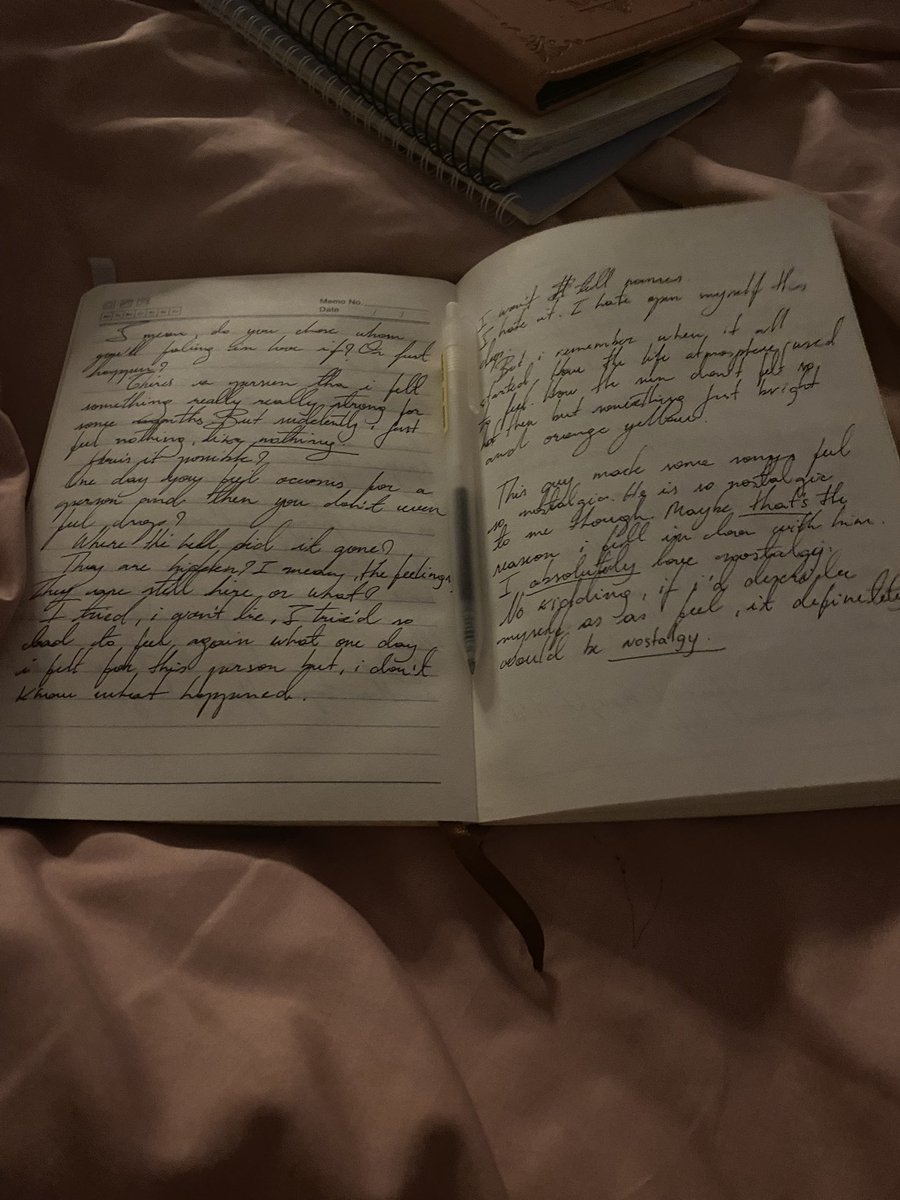 Memo No.
Date / /
I mean, do you chose whom
you'll faling in love if? Or just
happen?
There's a person tha i fell
something really really strong for
some months. But suddently i just
feel nothing, like, nothing
How is it possible?
One day you feel oceans for a
person and then you don't even
feel drops?
Where the hell did it gone?
They are hidden? I mean, the feelings.
They are still here or what?
I tried, i won't lie, I trie'd so
bad to feel again what one day
i felt for this person but, i don't
know what happened.
I won't tell names
I hate it. I hate open myself this
deep.
But i remember when it all
started, how the life atmosphere used
to feel. How the sun doesn't felt so
hot then but something just bright
and orange yellow.
This guy made some songs feel
so nostalgic. He is so nostalgic
to me though. Maybe that's the
reason i fell in love with him.
I absolutely love nostalgy.
No kidding, if i'd describe
myself as as feel, it definetely
would be nostalgy.